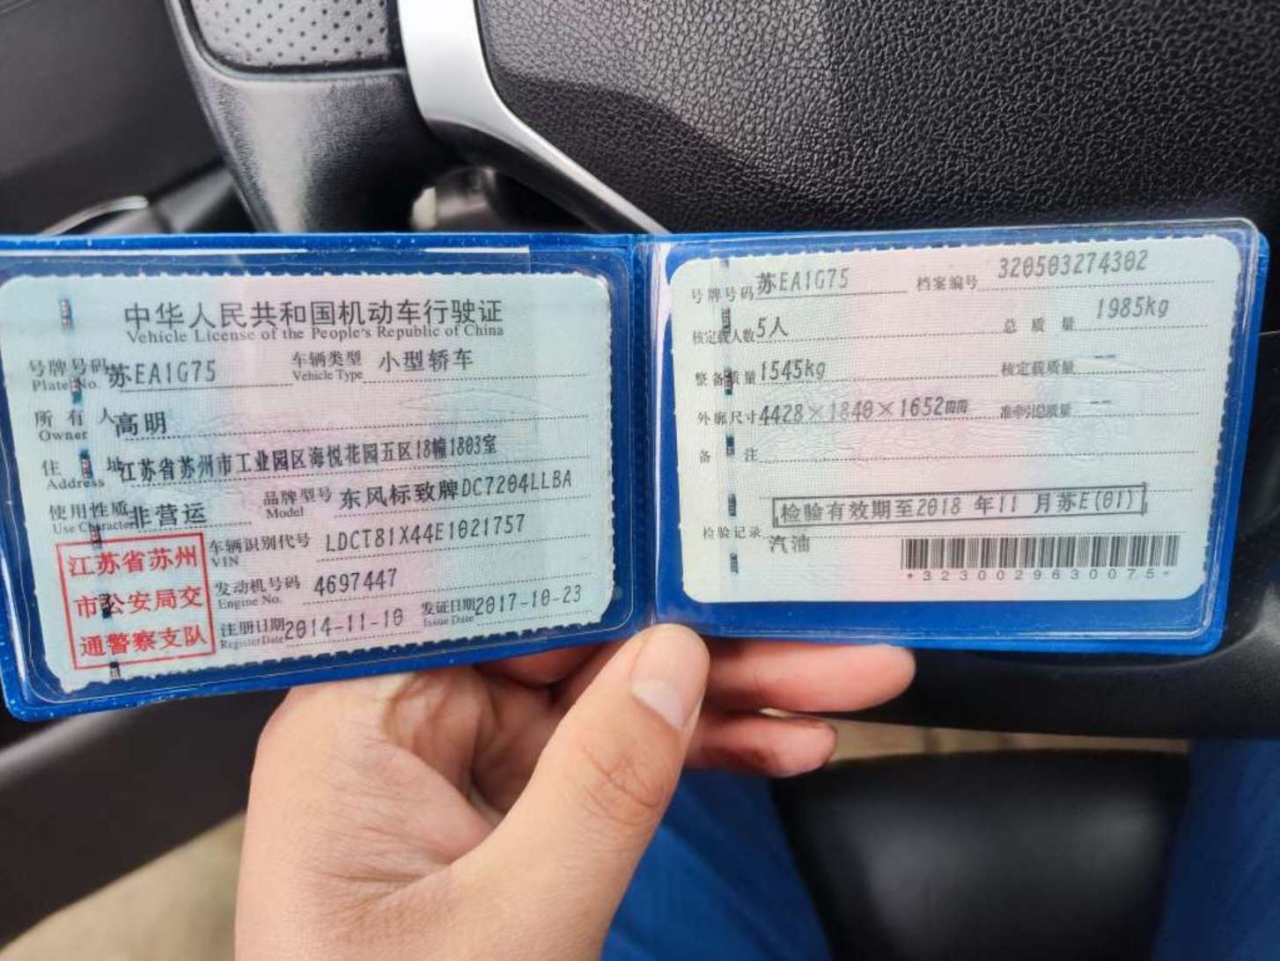 中华人民共和国机动车行驶证
Vehicle License of the People's Republic of China
号牌号码 苏EA1G75 车辆类型 小型轿车
Plate No. Vehicle Type
所有人 高明
Owner
住址 江苏省苏州市工业园区海悦花园五区18幢1803室
Address
使用性质 非营运 品牌型号 东风标致牌DC7204LLBA
Use Character Model
江苏省苏州
市公安局交
通警察支队
车辆识别代号 LDCT81X44E1021757
VIN
发动机号码 4697447
Engine No.
注册日期 2014-11-10 发证日期 2017-10-23
Register Date Issue Date
号牌号码 苏EA1G75 档案编号 320503274302
核定载人数 5人 总质量 1985kg
整备质量 1545kg 核定载质量 --
外廓尺寸 4428×1840×1652mm 准牵引总质量 --
备注
检验有效期至2018 年11 月苏E(01)
检验记录
汽油
*3230029630075*